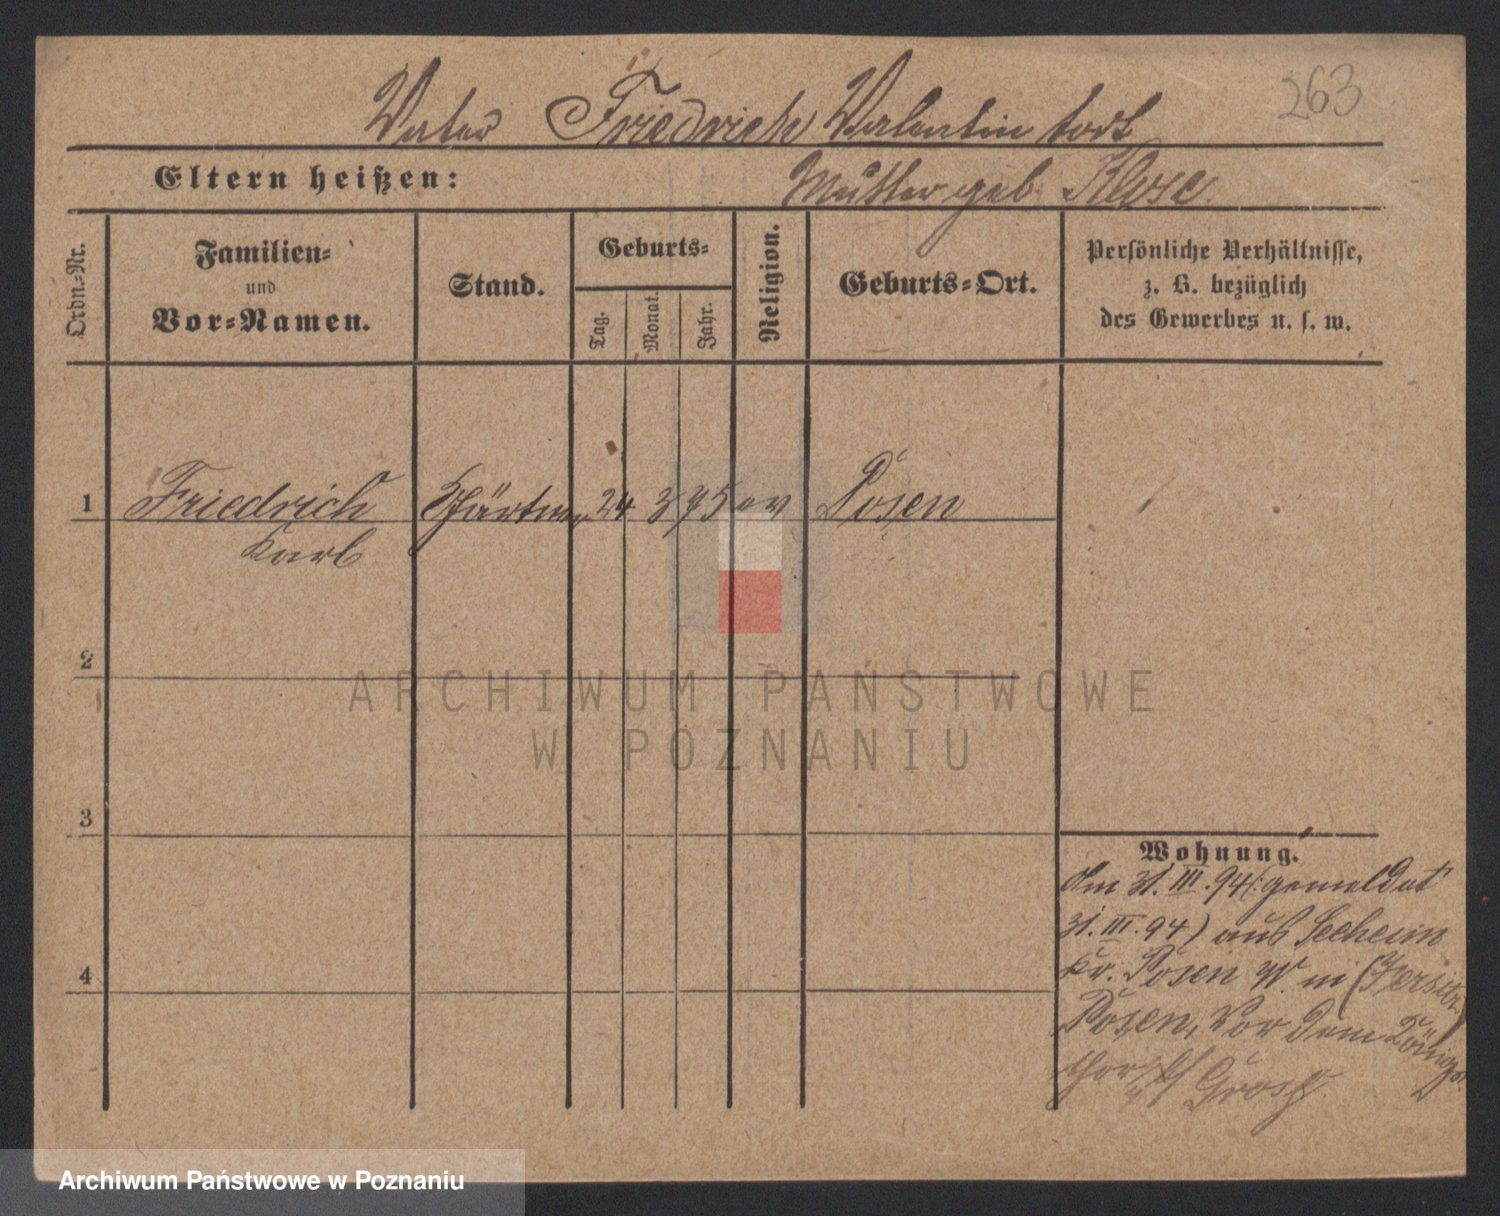 263
Vater Friedrich Valentin tort
Eltern heißen: Mutter geb. Klose.
Ordn.-Nr.
Familien-
und
Vor-Namen.
Stand.
Geburts-
Tag.
Monat.
Jahr.
Religion.
Geburts-Ort.
Persönliche Verhältnisse,
z. B. bezüglich
des Gewerbes u. s. w.
1 Friedrich Gärtner 24 3 75 ev Posen
Karl
2
ARCHIWUM PAŃSTWOWE
W POZNANIU
3
Wohnung.
Am 31. III. 94 (: gemeldet
31. III. 94) aus Seeheim
Kr. Posen W. in (Jersitz)
Posen, Vor dem Königs
thor b/ Grosz.
4
Archiwum Państwowe w Poznaniu